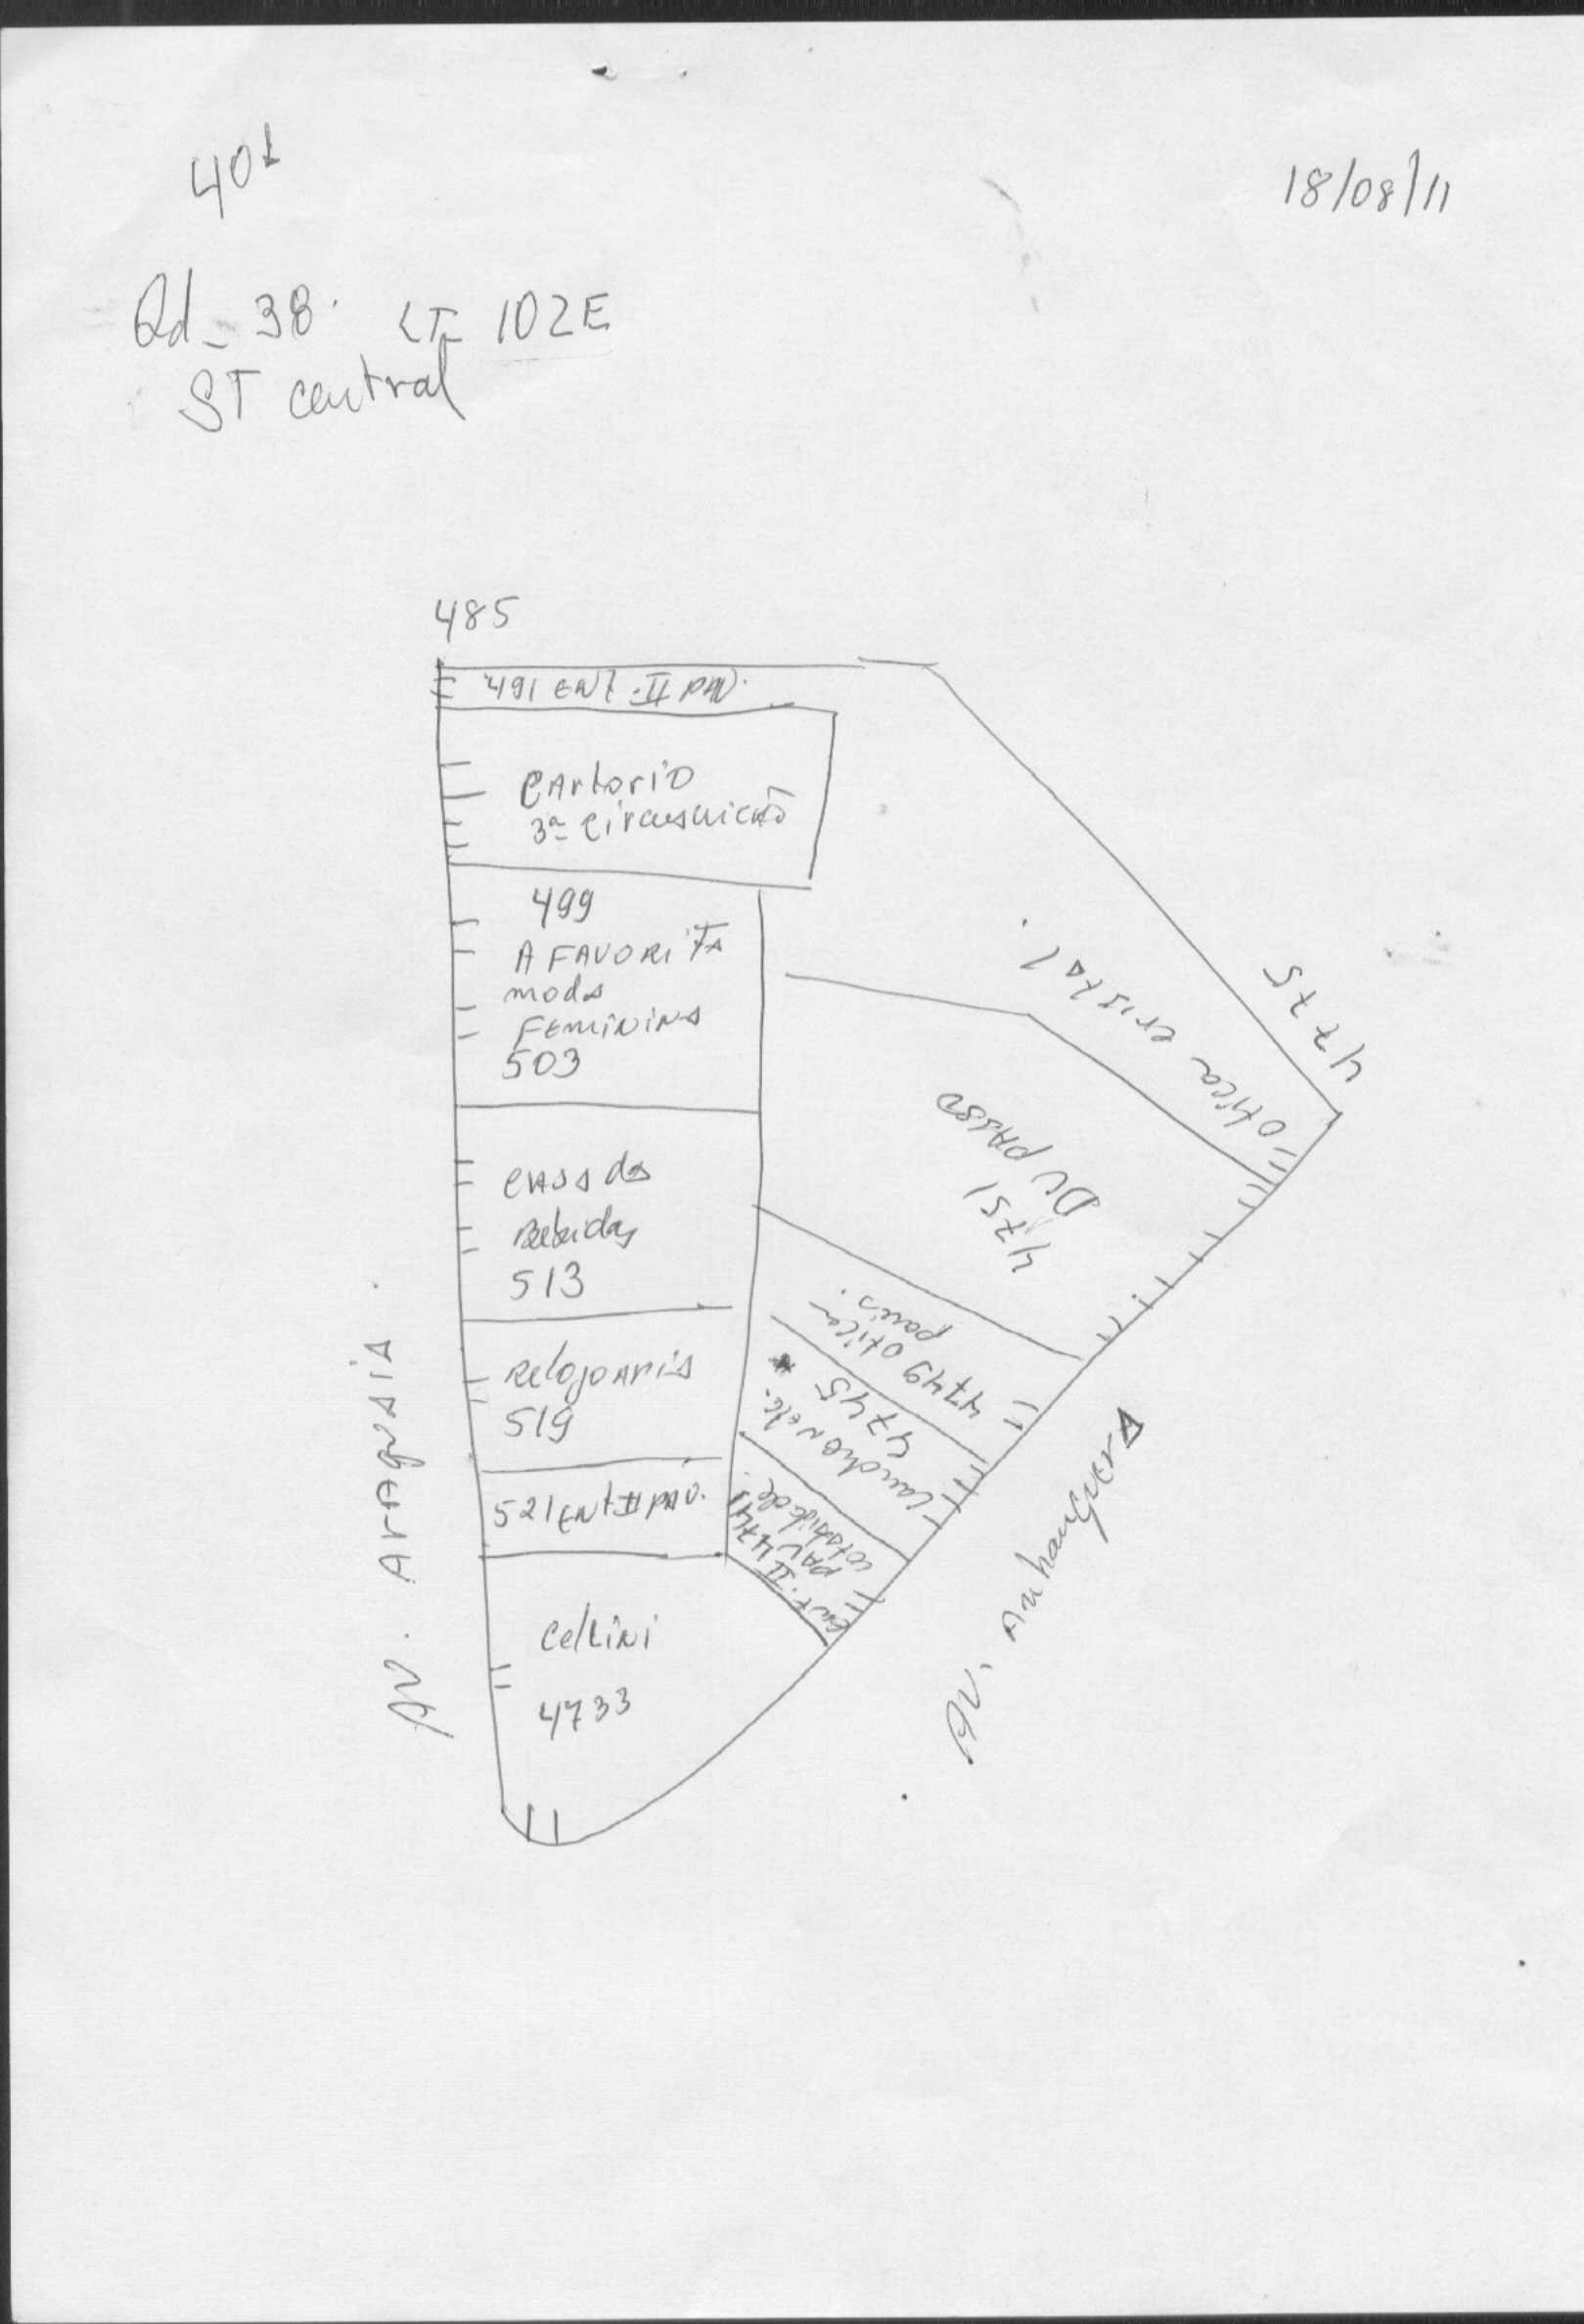 401
18/08/11
Qd - 38. LT- 102E
ST central
485
491 ENT. II PAV.
CArtoriO
3ª Circuscrição
499
A FAVORITA
moda
FEMININA
503
CASA das
Bebidas
513
RelojoAriA
519
521 ENt II PAV.
Cellini
4733
AV. ArAguaiA.
4775
otica cristal.
4751
DU PASSO
4749 otica
paris.
4745 *
Lanchonete.
Ent. II
PAV 4741
cotabilidade.
AV. Anhanguera